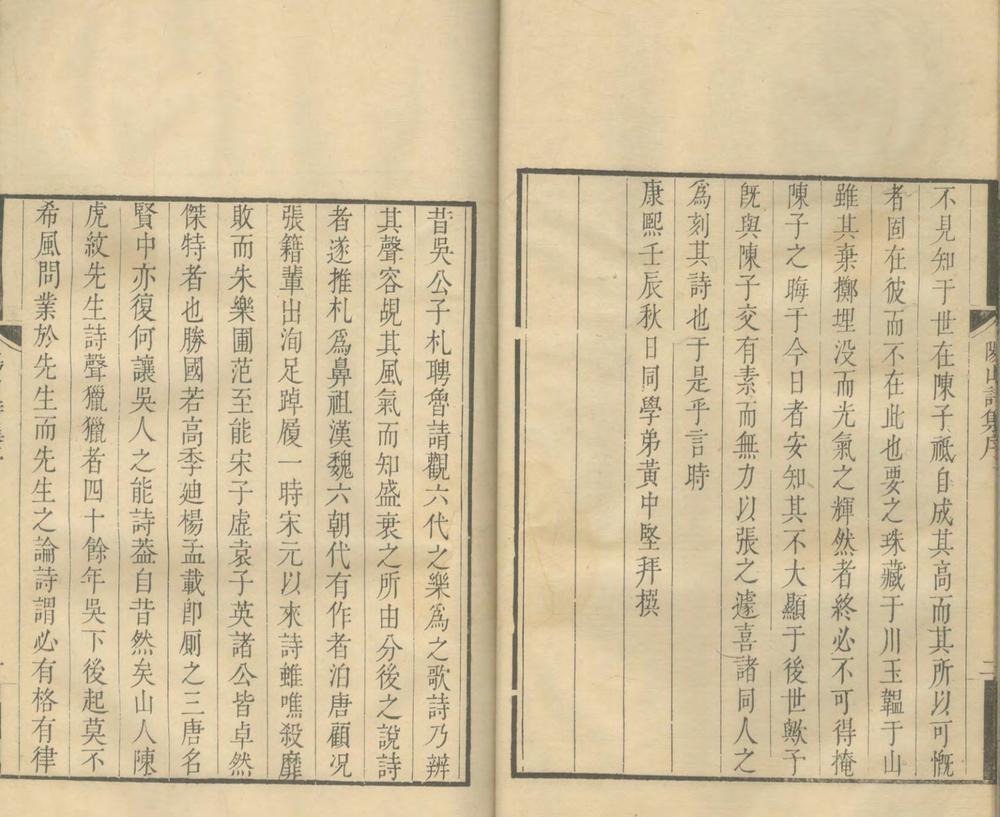 不見知于世在陳子祗自成其高而其所以可慨
者固在彼而不在此也要之珠藏于川玉韞于山
雖其棄擲埋没而光氣之輝然者終必不可得掩
陳子之晦于今日者安知其不大顯于後世歟予
旣與陳子交有素而無力以張之遽喜諸同人之
爲刻其詩也于是乎言時
康熙壬辰秋日同學弟黃中堅拜撰
昔吳公子札聘魯請觀六代之樂爲之歌詩乃辨
其聲容覘其風氣而知盛衰之所由分後之說詩
者遂推札爲鼻祖漢魏六朝代有作者洎唐顧况
張籍輩出洵足踔厲一時宋元以來詩雖噍殺靡
敗而朱樂圃范至能宋子虛袁子英諸公皆卓然
傑特者也勝國若高季廸楊孟載卽厠之三唐名
賢中亦復何讓吳人之能詩葢自昔然矣山人陳
虎紋先生詩聲獵獵者四十餘年吳下後起莫不
希風問業於先生而先生之論詩謂必有格有律
山詩集序
二